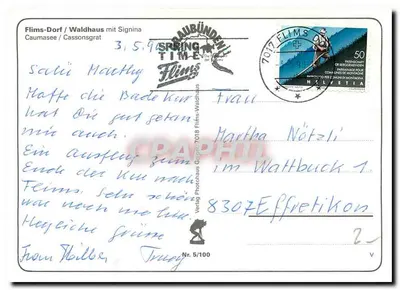 Flims-Dorf / Waldhaus mit Signina
Caumasee / Cassonsgrat
3.5.9
GRAUBÜNDEN
SPRING
TIME
Flims
7017 FLIMS DO
50
HELVETIA
Salü Marthy
Hoffe die Badekur
hat Dir gut getan
mir auch.
Ein Ausflug zum
Ende der Kur nach
Flims. Sehr schön
war noch
Herzliche Grüsse
Trudy
Frau
Martha Nötzli
im Wattbuck 1
8307 Effretikon
2.-
Verlag Photohaus
7018 Flims-Waldhaus
Nr. 5/100
V
CARPHILA